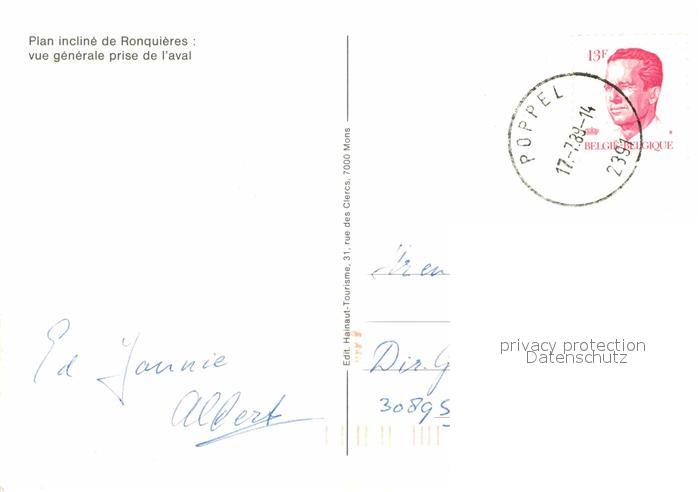 Plan incliné de Ronquières :
vue générale prise de l'aval
13F
BELGIË-BELGIQUE
POPPEL
17.-7.89-14
2391
Edit. Hainaut-Tourisme, 31, rue des Clercs, 7000 Mons
privacy protection
Datenschutz
Dir.G
3089 S
Albert